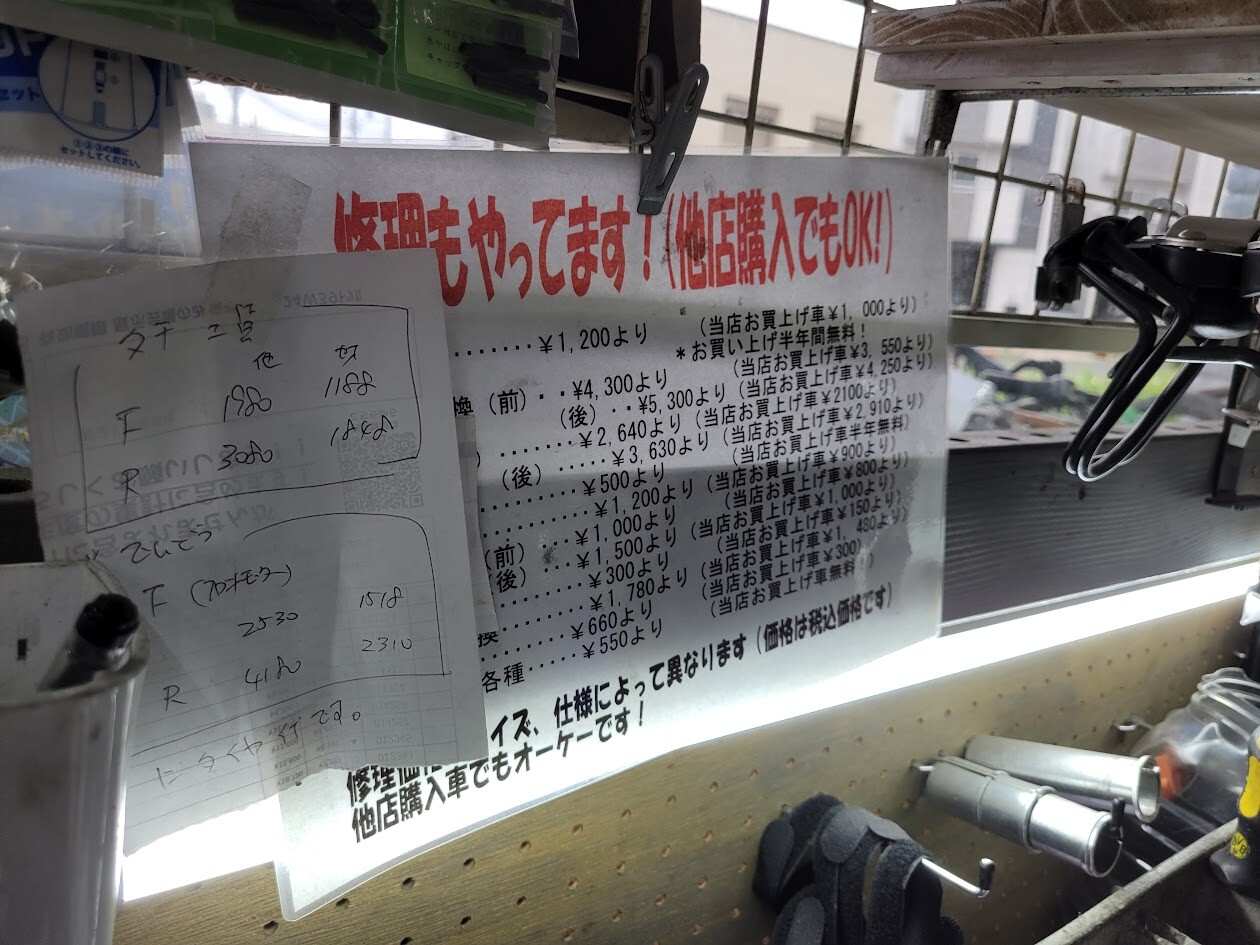 セット
①②③の順に
セットしてください。
修理もやってます！（他店購入でもOK!）
・・・・・・・¥1,200より （当店お買上げ車¥1,000より）
＊お買い上げ半年間無料！
換（前）・・¥4,300より （当店お買上げ車¥3,550より）
（後）・・¥5,300より （当店お買上げ車¥4,250より）
・・・・・¥2,640より （当店お買上げ車¥2100より）
（後）・・・・・¥3,630より （当店お買上げ車¥2,910より）
・・・・・・・¥500より （当店お買上げ車半年無料）
・・・・・・・・¥1,200より （当店お買上げ車¥900より）
（前）・・・¥1,000より （当店お買上げ車¥800より）
（後）・・・¥1,500より （当店お買上げ車¥1,000より）
・・・・・・・¥300より （当店お買上げ車¥150より）
・・・・・・・¥1,780より （当店お買上げ車¥1,480より）
換・・・・・・¥660より （当店お買上げ車¥300）
各種・・・・・¥550より （当店お買上げ車無料！）
イズ、仕様によって異なります（価格は税込価格です）
他店購入車でもオーケーです！
他
F 1980 1188
R 3080 1848
でんどう
F （フロントモーター）
2530 1518
R 4180 2310
です。